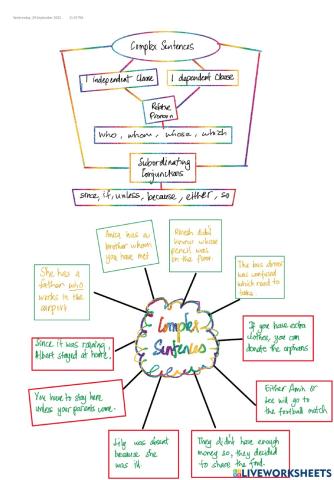 Wednesday, 29 September 2021
Complex Sentences
1 Independent Clause
1 dependent Clause
Relative
Pronoun
who, whom, whose, which
Subordinating
Conjunctions
since, if, unless, because, either, so
Anisa has a
brother whom
you have met
Ramesh didn't
know whose
pencil was
on the floor.
The bus driver
was confused
which road to
take.
She has a
father who
works in the
airport
Complex
Sentences
Since it was raining,
Albert stayed at home.
If you have extra
clothes, you can
donate the orphans
You have to stay here
unless your parents come.
Either Amin or
Lee will go to
the football match
Lily was absent
because she
was ill.
They didn't have enough
money so, they decided
to share the food.
LIVEWORKSHEETS